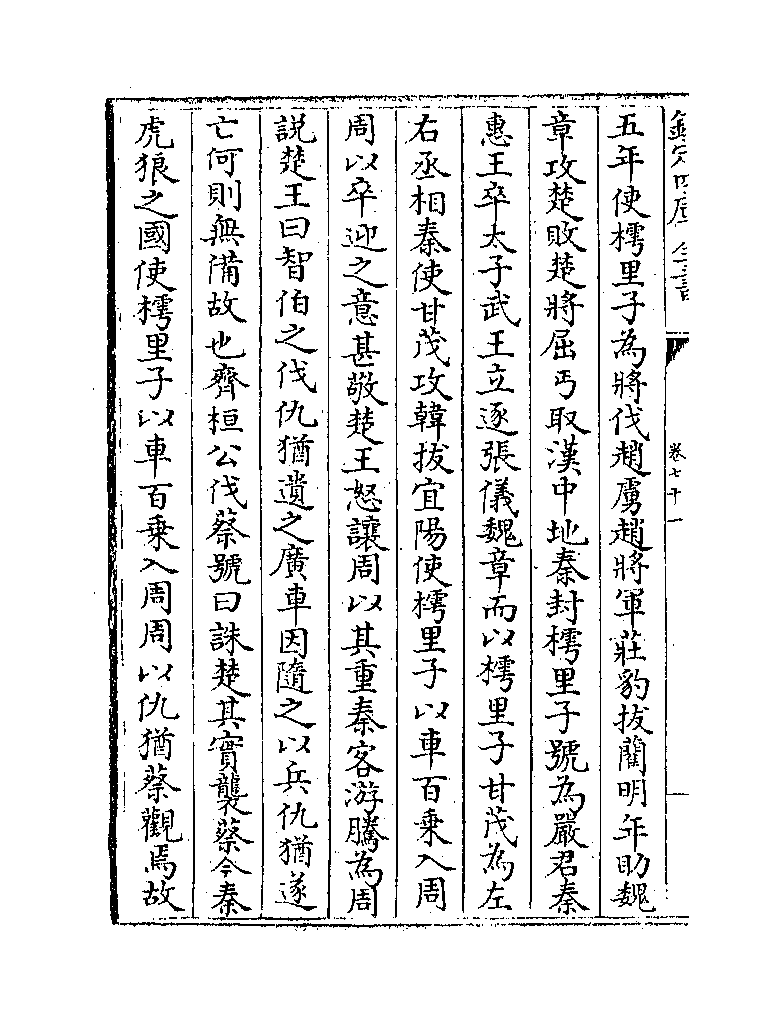 欽定四庫全書
卷七十一
五年使樗里子為將伐趙虜趙將軍莊豹拔藺明年助魏
章攻楚敗楚將屈丐取漢中地秦封樗里子號為嚴君秦
惠王卒太子武王立逐張儀魏章而以樗里子甘茂為左
右丞相秦使甘茂攻韓拔宜陽使樗里子以車百乗入周
周以卒迎之意甚敬楚王怒讓周以其重秦客游騰為周
説楚王曰智伯之伐仇猶遺之廣車因隨之以兵仇猶遂
亡何則無備故也齊桓公伐蔡號曰誅楚其實襲蔡今秦
虎狼之國使樗里子以車百乗入周周以仇猶蔡觀焉故